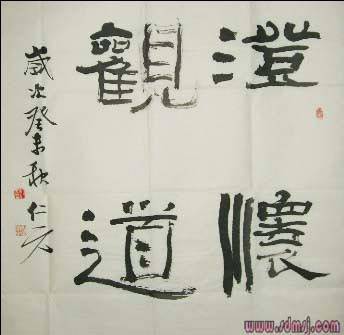 澄懷
觀道
歲次癸未秋仁元
www.sdmsj.com